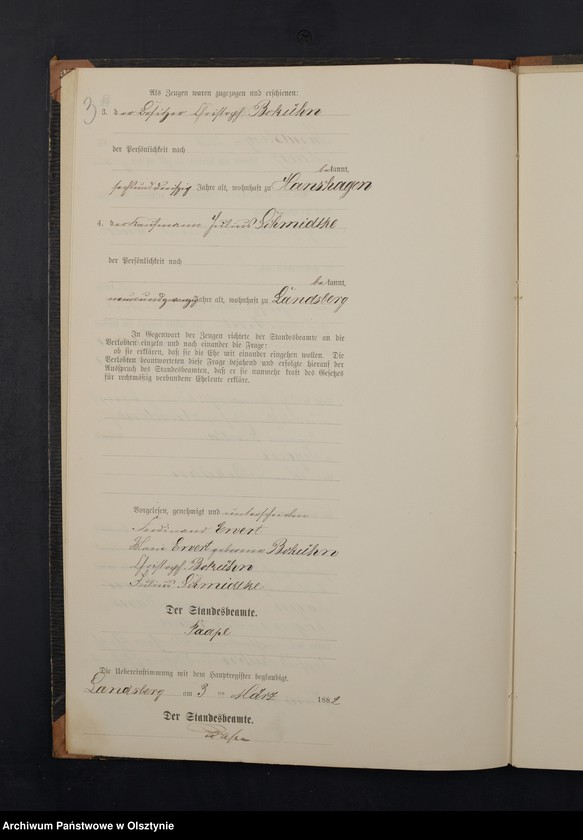 Als Zeugen waren zugezogen und erschienen:
3
3. der Besitzer Christoph Bokühn
der Persönlichkeit nach
bekannt,
sechsunddreißig Jahre alt, wohnhaft zu Hanshagen
4. der Kaufmann Julius Schmidtke
der Persönlichkeit nach
bekannt,
neunundzwanzig Jahre alt, wohnhaft zu Landsberg
In Gegenwart der Zeugen richtete der Standesbeamte an die
Verlobten einzeln und nach einander die Frage:
ob sie erklären, daß sie die Ehe mit einander eingehen wollen. Die
Verlobten beantworteten diese Frage bejahend und erfolgte hierauf der
Ausspruch des Standesbeamten, daß er sie nunmehr kraft des Gesetzes
für rechtmäßig verbundene Eheleute erkläre.
Vorgelesen, genehmigt und unterschrieben
Ferdinand Ewert
Ewert geborene Bokühn
Christoph Bokühn
Julius Schmidtke
Der Standesbeamte.
Paape
Die Uebereinstimmung mit dem Hauptregister beglaubigt.
Landsberg am 3 ten März 1882
Der Standesbeamte.
Paape
Archiwum Państwowe w Olsztynie